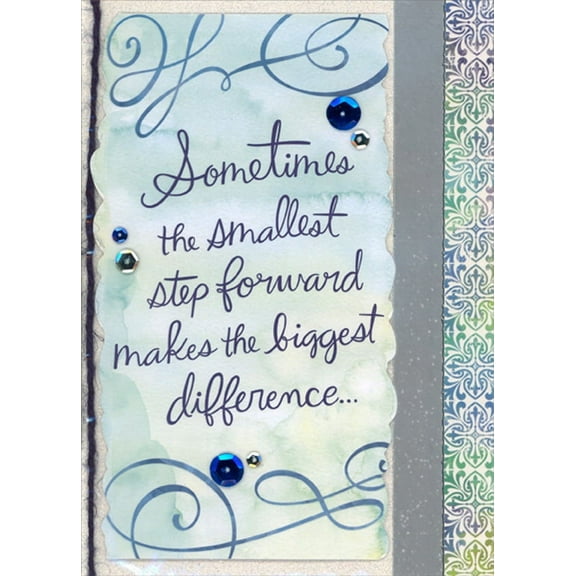 Sometimes
the smallest
step forward
makes the biggest
difference...